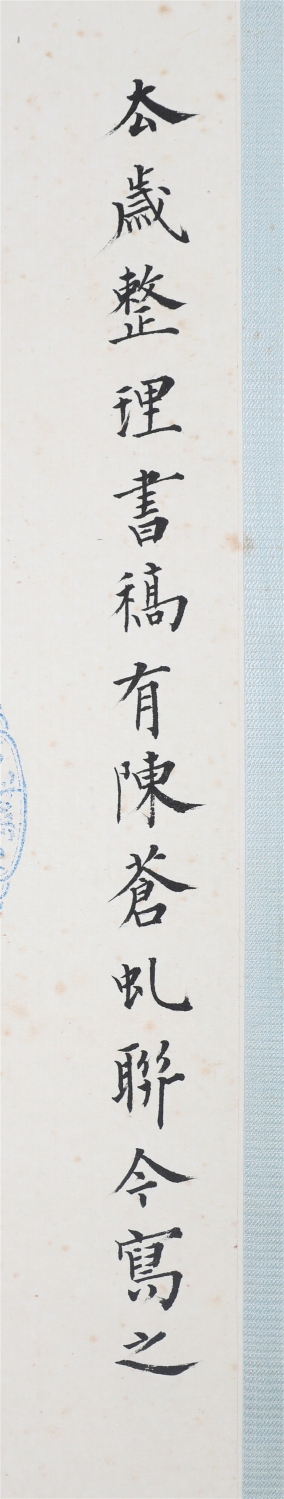 厺歲整理書稿有陳蒼虬聯今寫之